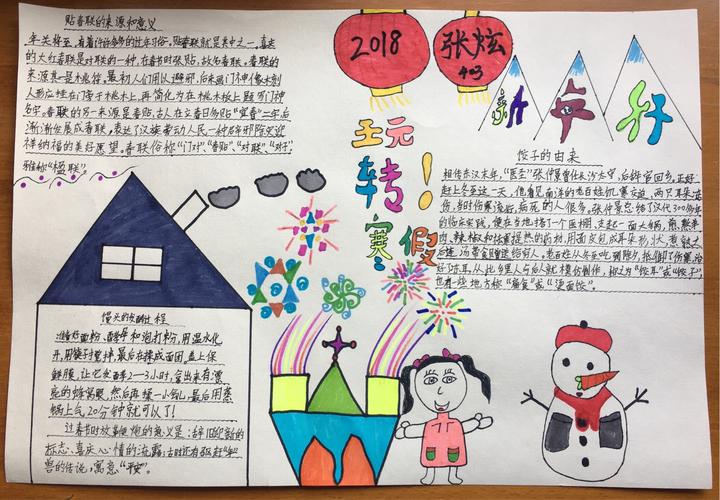 贴春联的来源和意义
年关将至,有着许许多多的过年习俗。贴春联就是其中之一。喜庆
的大红春联是对联的一种,在春节时张贴,故名春联。春联的
来源其一是桃符。最初人们用以避邪,后来画门神像
人形应挂在门旁于桃木上,再简化为在桃木板上题写门神
名字。春联的另一来源是春贴,古人在立春日多贴"宜春"二字后
渐渐发展成春联。表达了汉族劳动人民一种辟邪除灾迎
祥纳福的美好愿望。春联俗称"门对""春贴""对联""对子"
雅称"楹联"。
2018
张炫
403
新年好
玩转寒假!
饺子的由来
相传东汉末年,"医圣"张仲景曾任长沙太守,后辞官回乡。正好
赶上冬至这一天,他看见南洋的老百姓饥寒交迫,两只耳朵冻
伤,当时伤寒流行,病死的人很多。张仲景总结了汉代300多年
的临床实践,便在当地搭了一个医棚,支起一面大锅,煎熬羊
肉,辣椒和祛寒提热的药材,用面皮包成耳朵形状,煮熟之
后连汤带食赠送给穷人。老百姓从冬至吃到除夕,抵御了伤寒,治
好了冻耳,从此乡里人与后人就模仿制作,称之为"饺耳"或"饺子",
也有一些地方称"扁食"或"烫面饺"。
馒头的发酵过程
准备好面粉、酵母和泡打粉,用温水化
开,用筷子搅拌,最后在揉成面团。盖上保
鲜膜,让它发酵2—3小时,拿出来有漂
亮的蜂窝眼,然后再揉一小会儿,最后用蒸
锅上气,20分钟就可以了!
过春节时放鞭炮的意义是:辞旧迎新的
标志、喜庆心情的流露;古时还有驱赶"年"
兽的传说,寓意"平安"。